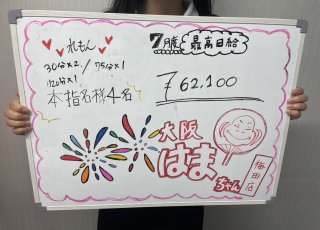 れもん
30分×2 / 75分×1
120分×1
本指名様4名
7月度 最高日給
¥62,100
大阪
はま
ちゃん
梅田店